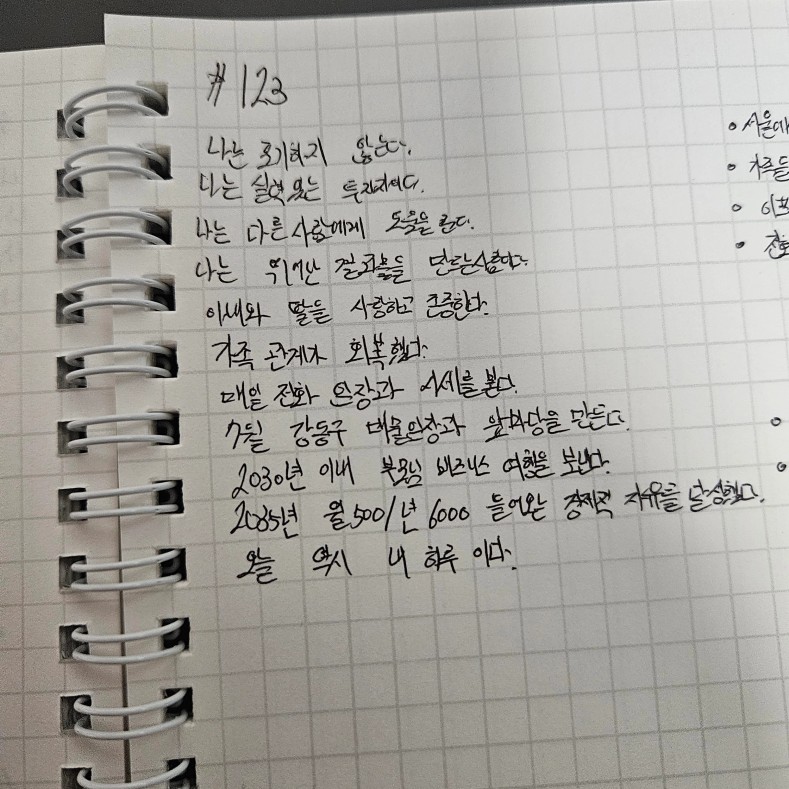 #123
나는 포기하지 않는다.
나는 실력있는 투자자이다.
나는 다른사람에게 도움을 준다.
나는 뛰어난 결과물들 만드는사람이다.
아내와 딸을 사랑하고 존중한다.
가족 관계가 회복했다.
매일 전화 임장과 시세를 본다.
7월 강동구 매물임장과 앞마당을 만든다.
2030년 이내 부모님 비즈니스 여행을 보낸다.
2035년 월500/년6000 들어오는 경제적 자유를 달성했다.
오늘 역시 내 하루 이다.
• 서울에
• 가족들
•
• 전화
•
•